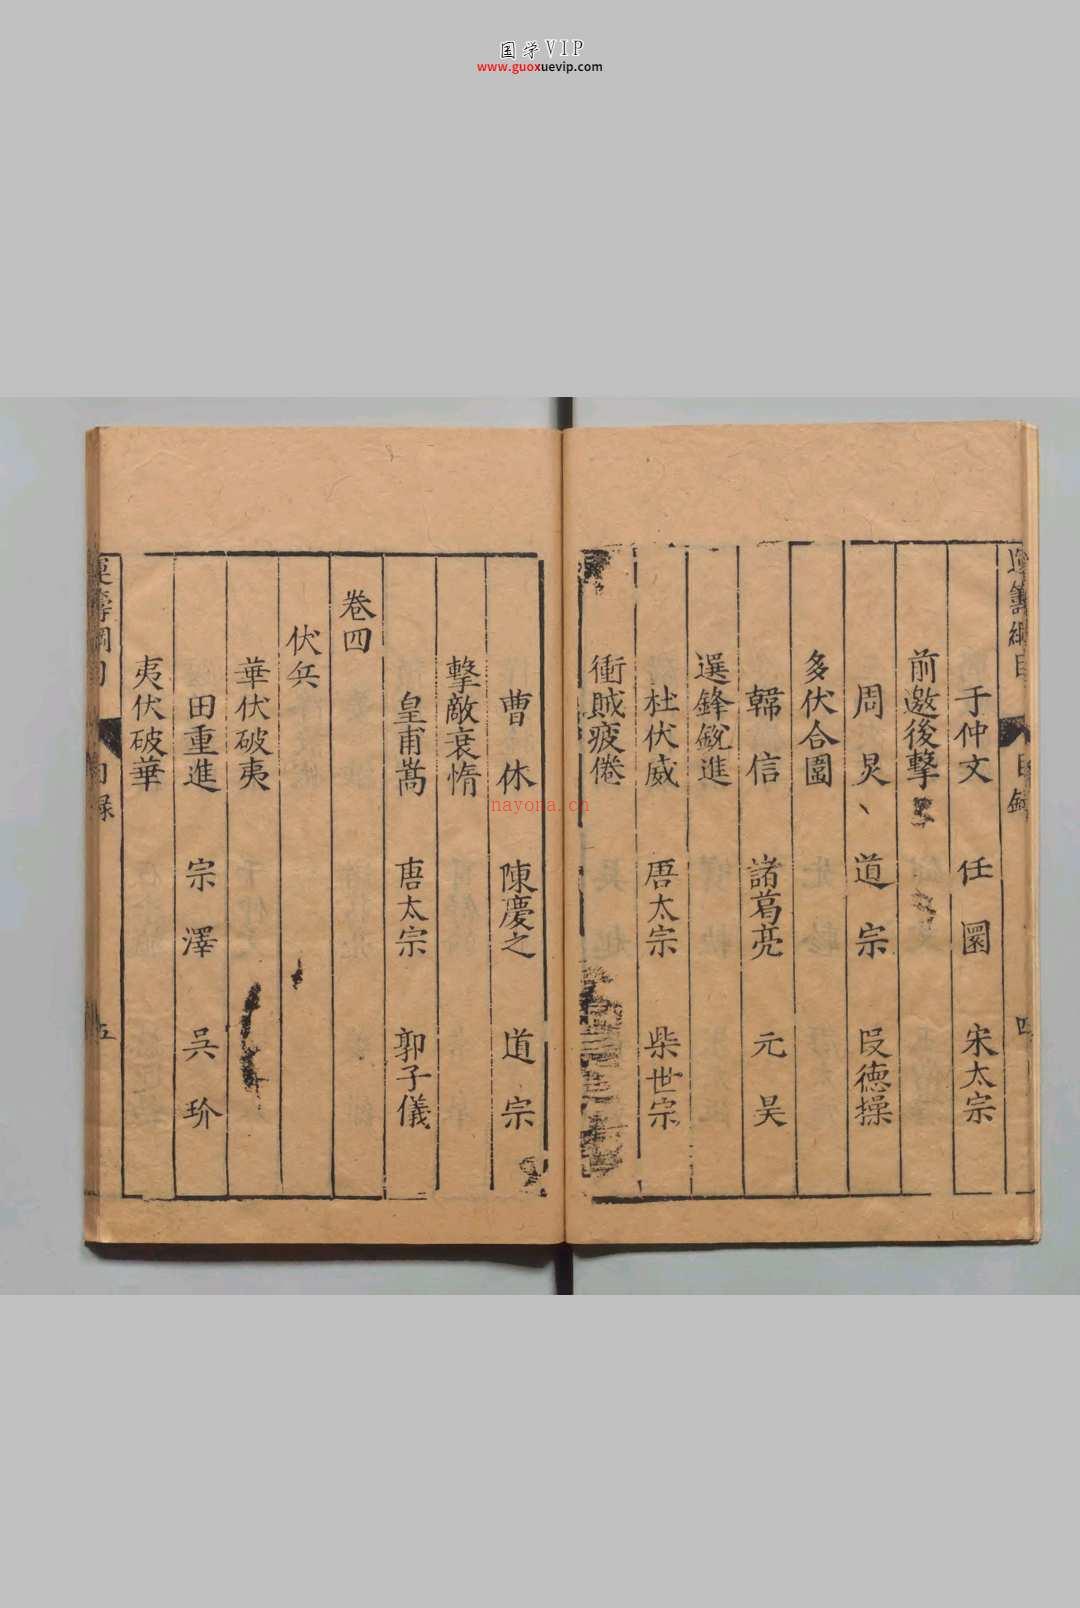 国学VIP
www.guoxuevip.com
運籌綱目 目録 四
于仲文 任圜 宋太宗
前邀後擊
周炅 道宗 段德操
多伏合圍
韓信 諸葛亮 元昊
選鋒銳進
杜伏威 唐太宗 柴世宗
衝賊疲倦
曹休 陳慶之 道宗
擊敵衰惰
皇甫嵩 唐太宗 郭子儀
卷四
伏兵
華伏破夷
田重進 宗澤 吳玠
夷伏破華
運籌綱目 目録 五
nayona.cn